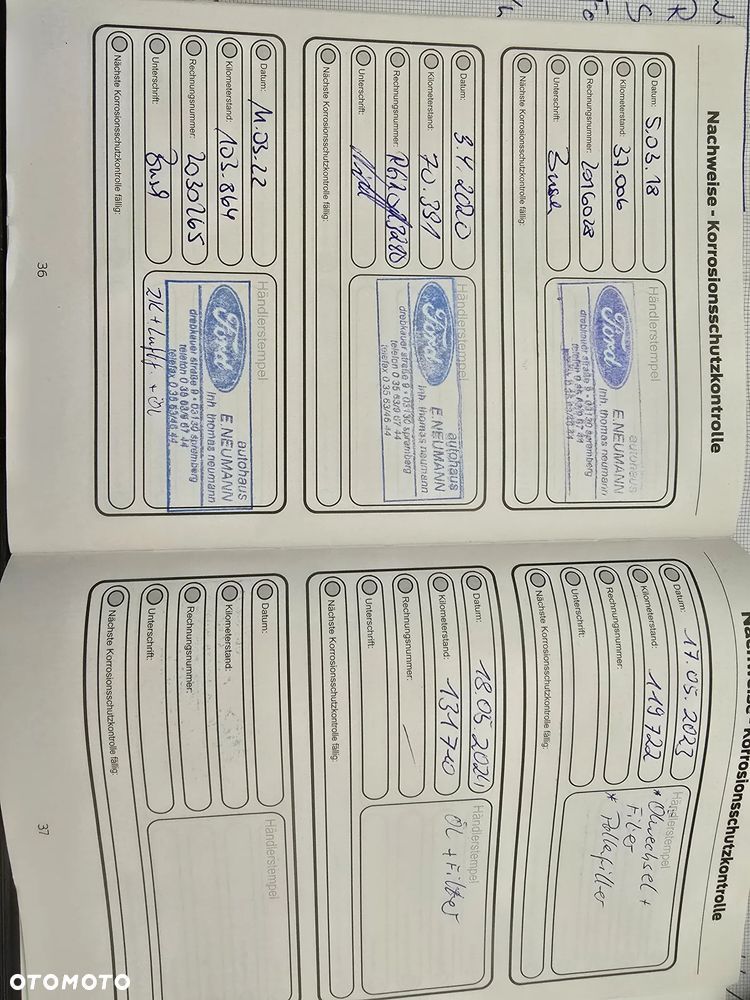 Nachweise - Korrosionsschutzkontrolle
Datum: 5.03.18
Kilometerstand: 37.006
Rechnungsnummer: 2016028
Unterschrift:
Nächste Korrosionsschutzkontrolle fällig:
Händlerstempel
Ford
autohaus
E.NEUMANN
inh. thomas neumann
drebkauer straße 9 - 03130 spremberg
Datum: 3.4.2020
Kilometerstand: 70.391
Rechnungsnummer:
Unterschrift:
Nächste Korrosionsschutzkontrolle fällig:
Händlerstempel
Ford
autohaus
E.NEUMANN
inh. thomas neumann
drebkauer straße 9 - 03130 spremberg
telefon 0 35 63/9 67 44
telefax 0 35 63/46 44
Datum: 11.03.22
Kilometerstand: 103.864
Rechnungsnummer: 2030265
Unterschrift:
Nächste Korrosionsschutzkontrolle fällig:
Händlerstempel
Ford
autohaus
E.NEUMANN
inh. thomas neumann
drebkauer straße 9 - 03130 spremberg
telefon 0 35 63/9 67 44
telefax 0 35 63/46 44
ZK + Luftf + ÖL
36
Nachweise - Korrosionsschutzkontrolle
Datum: 17.05.2023
Kilometerstand: 119722
Rechnungsnummer:
Unterschrift:
Nächste Korrosionsschutzkontrolle fällig:
Händlerstempel
* Ölwechsel +
Filter
* Pollenfilter
Datum: 18.05.2024
Kilometerstand: 131740
Rechnungsnummer: —
Unterschrift:
Nächste Korrosionsschutzkontrolle fällig:
Händlerstempel
ÖL + Filter
Datum:
Kilometerstand:
Rechnungsnummer:
Unterschrift:
Nächste Korrosionsschutzkontrolle fällig:
Händlerstempel
37
OTOMOTO